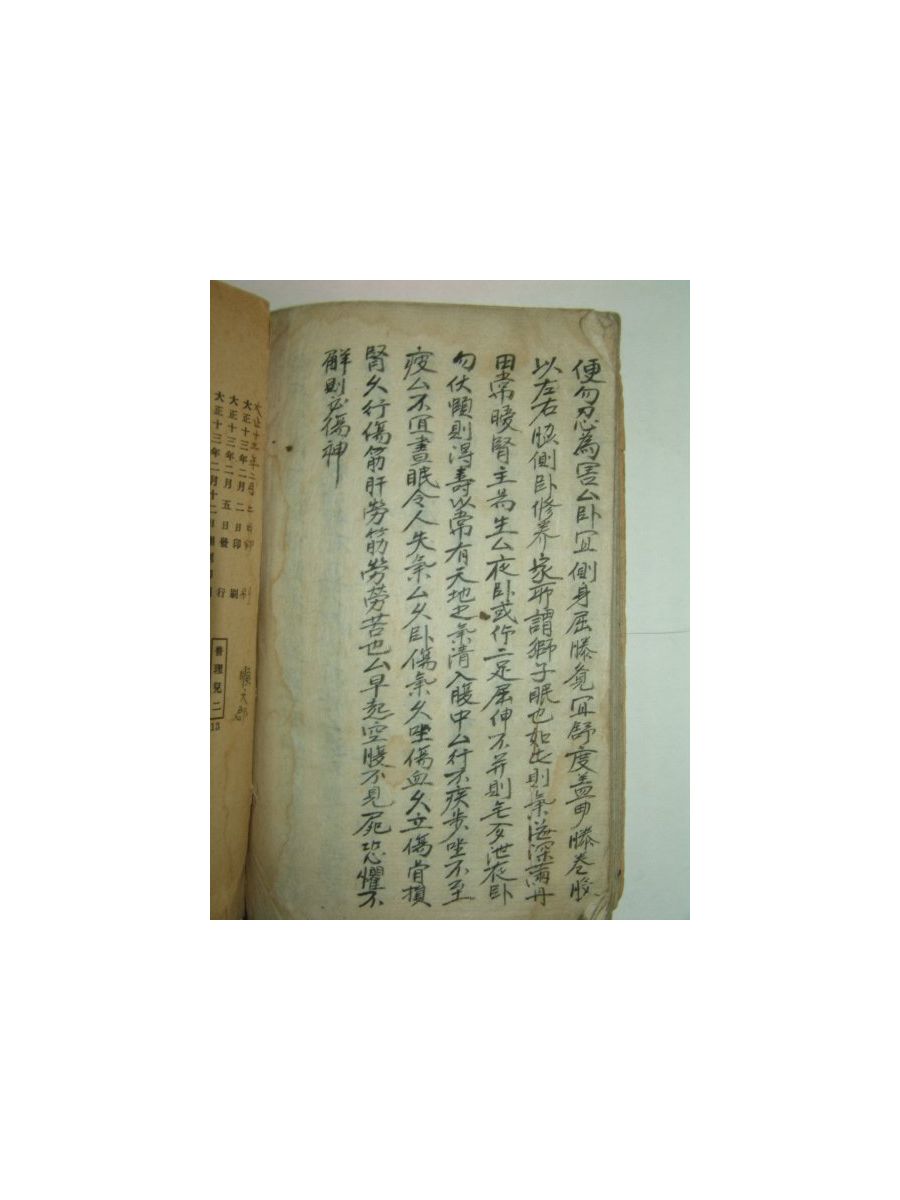 便勿忍為害厶卧冝側身屈膝覔冝舒度盖曲膝卷股
以左右脇側卧修养家所謂獅子眠也如此則氣海深滿丹
田常暖腎主為生厶夜卧或作二足屈伸不并則無夢泄夜卧
勿伏頥則淂壽以常有天地之氣清入腹中厶行不疾步坐不至
疲厶不冝晝眠令人失氣厶久卧傷氣久坐傷血久立傷骨損
腎久行傷筋肝勞筋勞勞苦也厶早起空腹不見屍恐懼不
觧則必傷神
大正十三年二月二日印刷
大正十三年二月二日印刷
大正十三年二月五日發行
大正十三年二月十二日